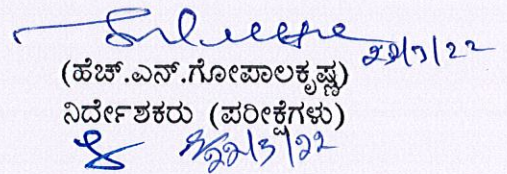 22/3/22
(ಹೆಚ್.ಎನ್.ಗೋಪಾಲಕೃಷ್ಣ)
ನಿರ್ದೇಶಕರು (ಪರೀಕ್ಷೆಗಳು)
22/3/22